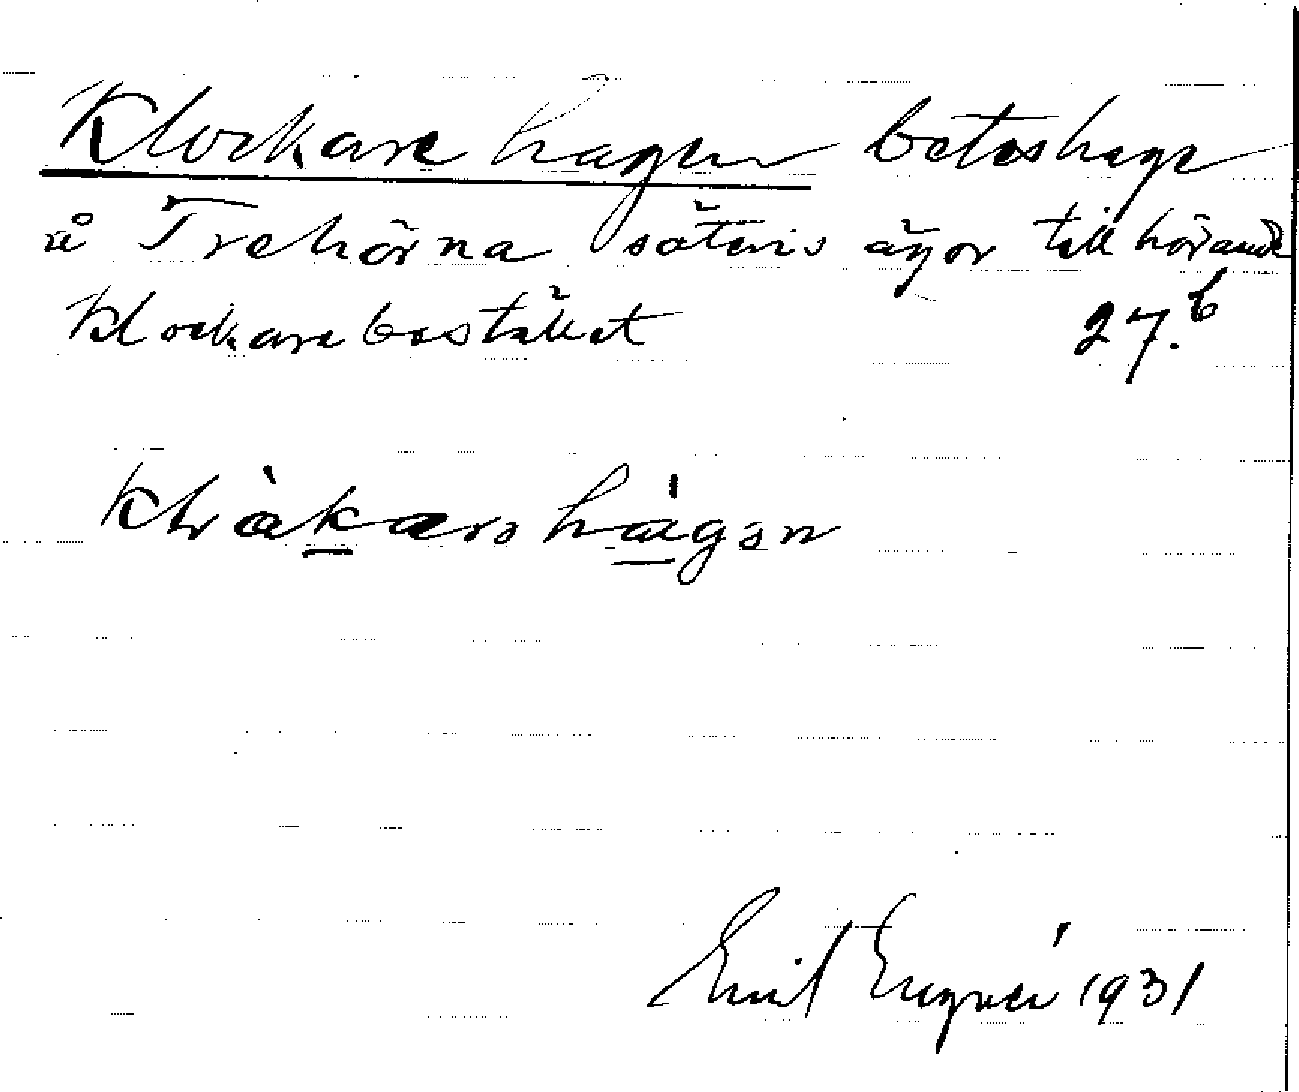 Klockarehagen betoshage
å Trehörna säteris ägor tillhörande
Klockarebostället 27.b
Emil Engvér 1931